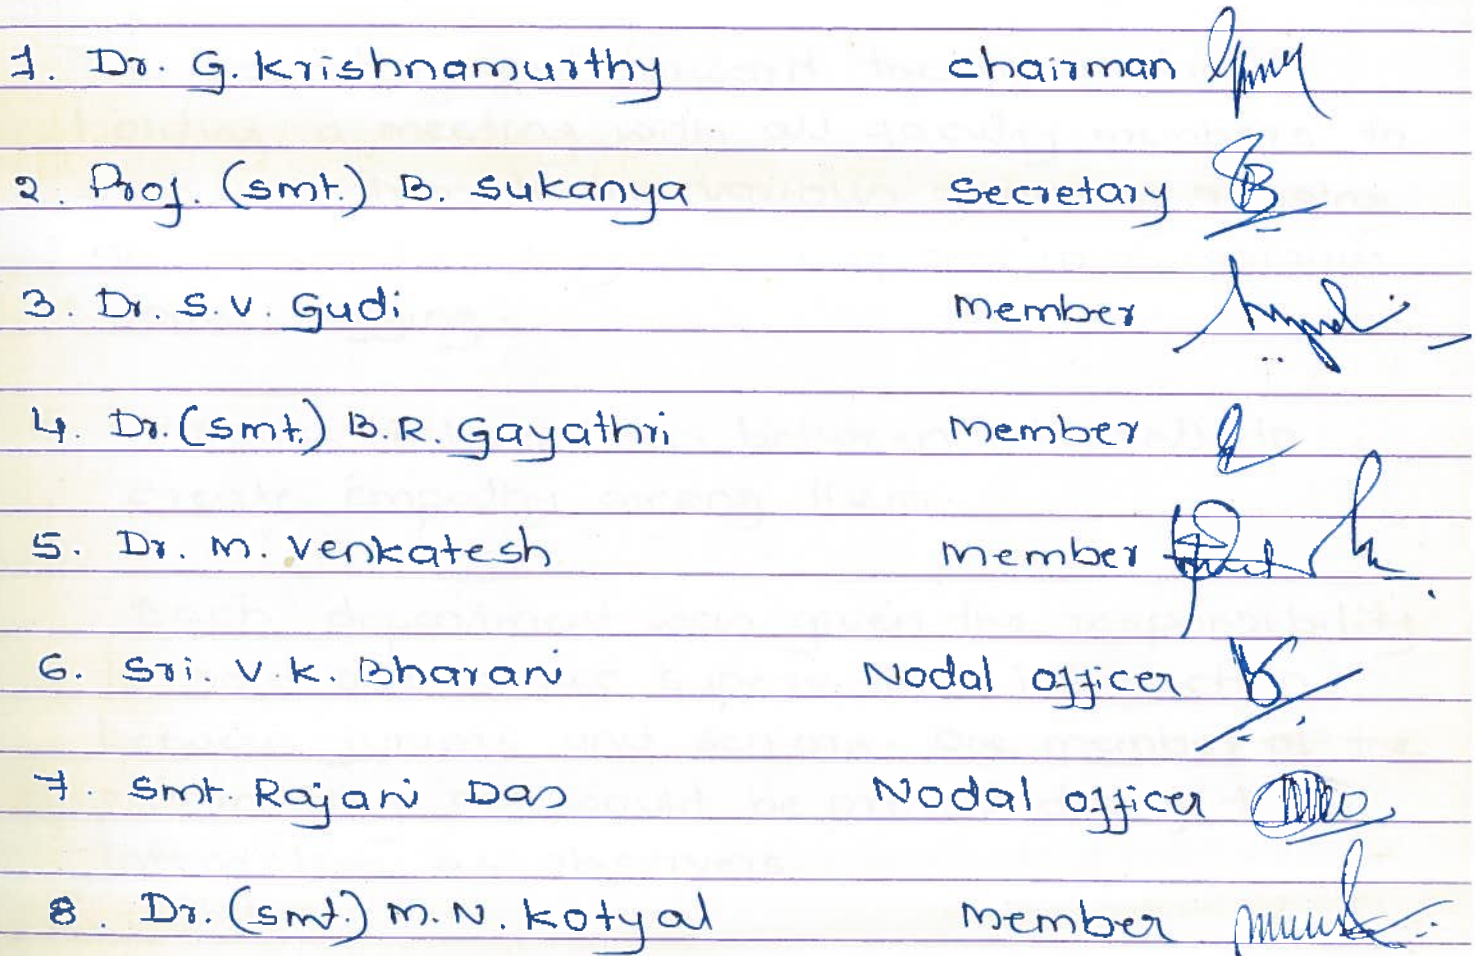 1. Dr. G. Krishnamurthy chairman
2. Prof. (smt.) B. Sukanya Secretary
3. Dr. S.V. Gudi Member
4. Dr. (smt.) B.R. Gayathri Member
5. Dr. M. Venkatesh Member
6. Sri. V K. Bharani Nodal officer
7. Smt. Rajani Das Nodal officer
8. Dr. (smt.) M.N. Kotyal Member